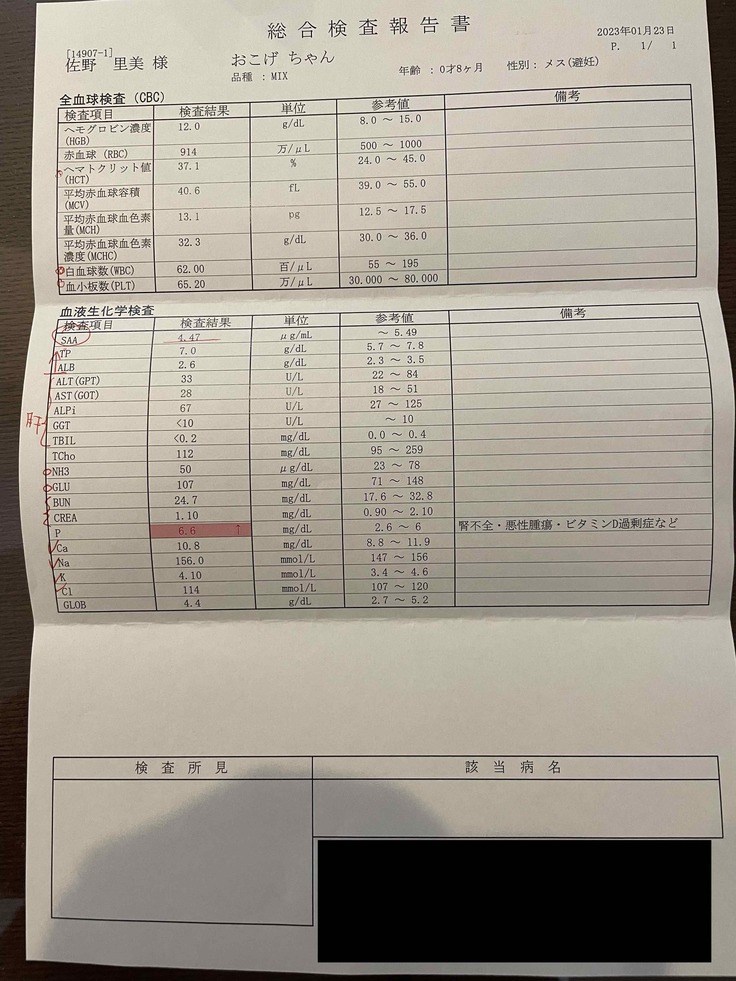 総合検査報告書
2023年01月23日
P. 1/ 1
[14907-1]
佐野 里美 様 おこげ ちゃん
品種 : MIX 年齢 : 0才8ヶ月 性別 : メス(避妊)
全血球検査 (CBC)
検査項目 検査結果 単位 参考値 備考
ヘモグロビン濃度(HGB) 12.0 g/dL 8.0 ～ 15.0
赤血球 (RBC) 914 万/μL 500 ～ 1000
ヘマトクリット値(HCT) 37.1 % 24.0 ～ 45.0
平均赤血球容積(MCV) 40.6 fL 39.0 ～ 55.0
平均赤血球血色素量(MCH) 13.1 pg 12.5 ～ 17.5
平均赤血球血色素濃度(MCHC) 32.3 g/dL 30.0 ～ 36.0
白血球数(WBC) 62.00 百/μL 55 ～ 195
血小板数(PLT) 65.20 万/μL 30.000 ～ 80.000
血液生化学検査
検査項目 検査結果 単位 参考値 備考
SAA 4.47 μg/mL ～ 5.49
TP 7.0 g/dL 5.7 ～ 7.8
ALB 2.6 g/dL 2.3 ～ 3.5
ALT(GPT) 33 U/L 22 ～ 84
AST(GOT) 28 U/L 18 ～ 51
ALPi 67 U/L 27 ～ 125
肝
GGT <10 U/L ～ 10
TBIL <0.2 mg/dL 0.0 ～ 0.4
TCho 112 mg/dL 95 ～ 259
NH3 50 μg/dL 23 ～ 78
GLU 107 mg/dL 71 ～ 148
BUN 24.7 mg/dL 17.6 ～ 32.8
CREA 1.10 mg/dL 0.90 ～ 2.10
P 6.6 ↑ mg/dL 2.6 ～ 6 腎不全・悪性腫瘍・ビタミンD過剰症など
Ca 10.8 mg/dL 8.8 ～ 11.9
Na 156.0 mmol/L 147 ～ 156
K 4.10 mmol/L 3.4 ～ 4.6
Cl 114 mmol/L 107 ～ 120
GLOB 4.4 g/dL 2.7 ～ 5.2
検査所見 該当病名